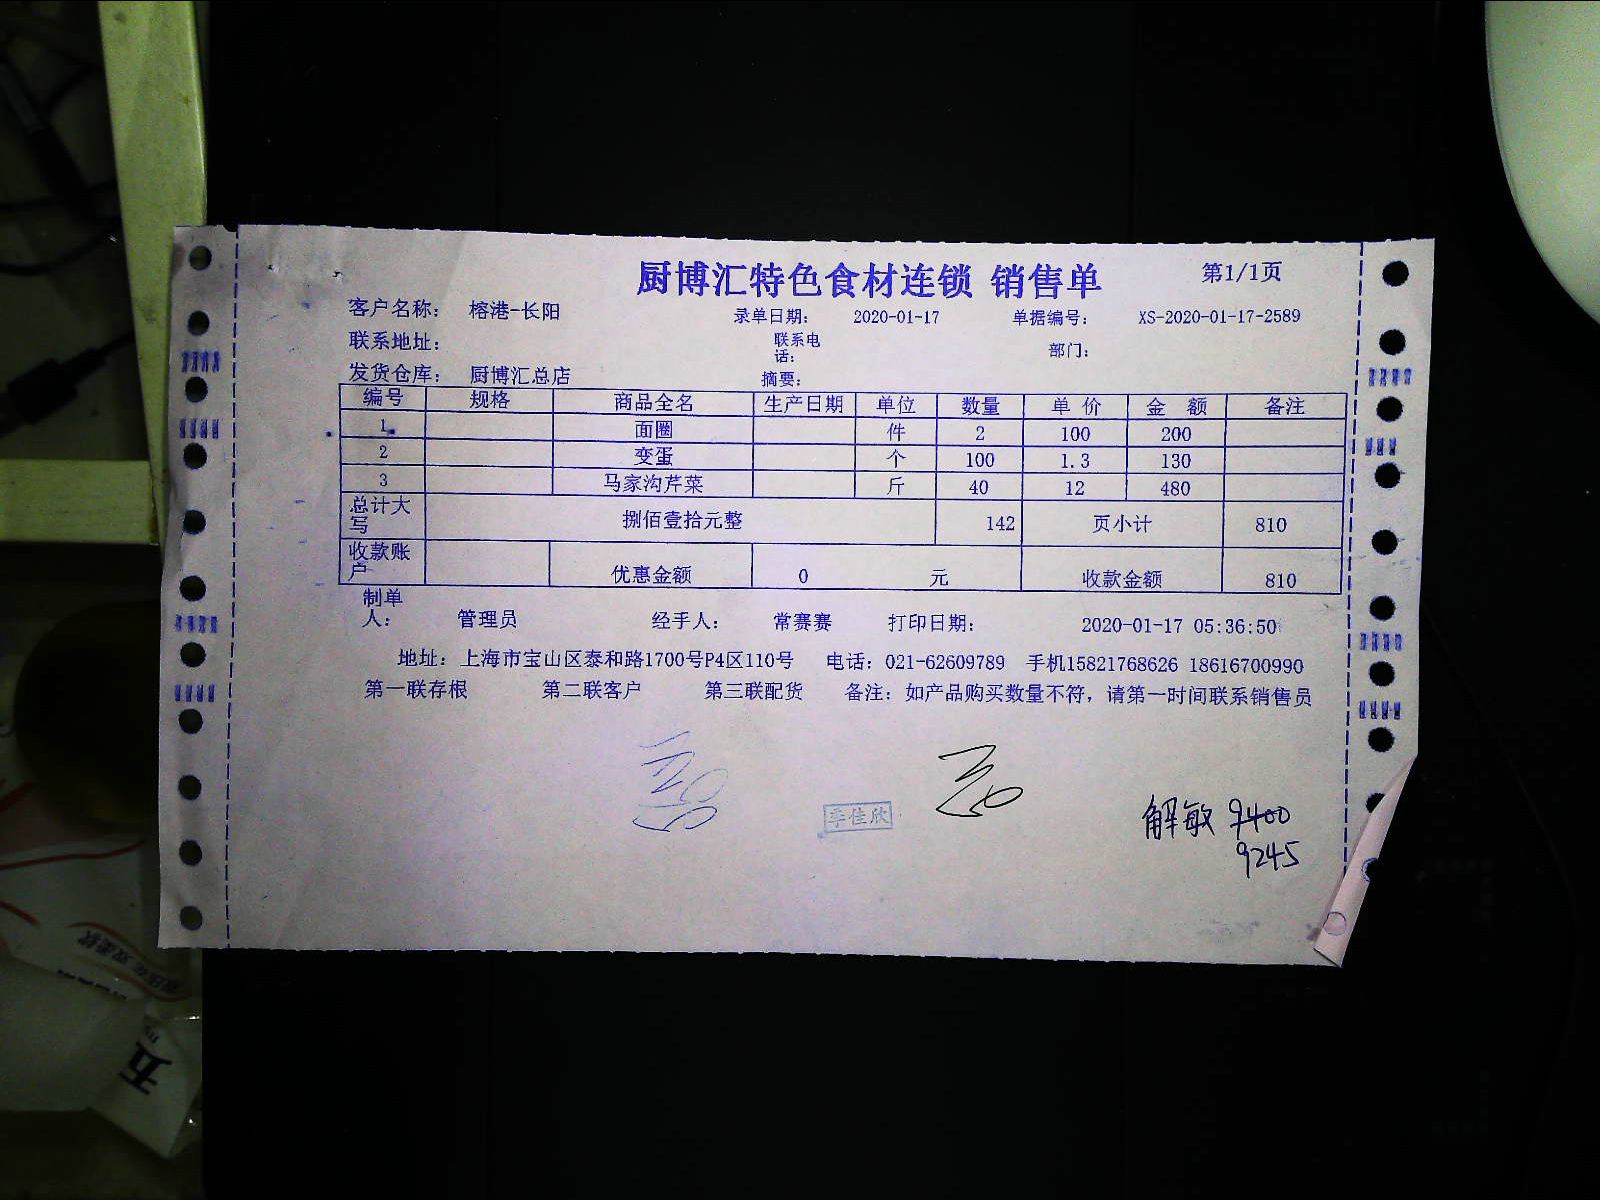 厨博汇特色食材连锁 销售单 第1/1页
客户名称： 榕港-长阳 录单日期： 2020-01-17 单据编号： XS-2020-01-17-2589
联系地址： 联系电话： 部门：
发货仓库： 厨博汇总店 摘要：
编号 规格 商品全名 生产日期 单位 数量 单 价 金 额 备注
1 面圈 件 2 100 200
2 变蛋 个 100 1.3 130
3 马家沟芹菜 斤 40 12 480
总计大写 捌佰壹拾元整 142 页小计 810
收款账户 优惠金额 0 元 收款金额 810
制单人： 管理员 经手人： 常赛赛 打印日期： 2020-01-17 05:36:50
地址：上海市宝山区泰和路1700号P4区110号 电话：021-62609789 手机15821768626 18616700990
第一联存根 第二联客户 第三联配货 备注：如产品购买数量不符，请第一时间联系销售员
李佳欣
解敏 9400
9245
五